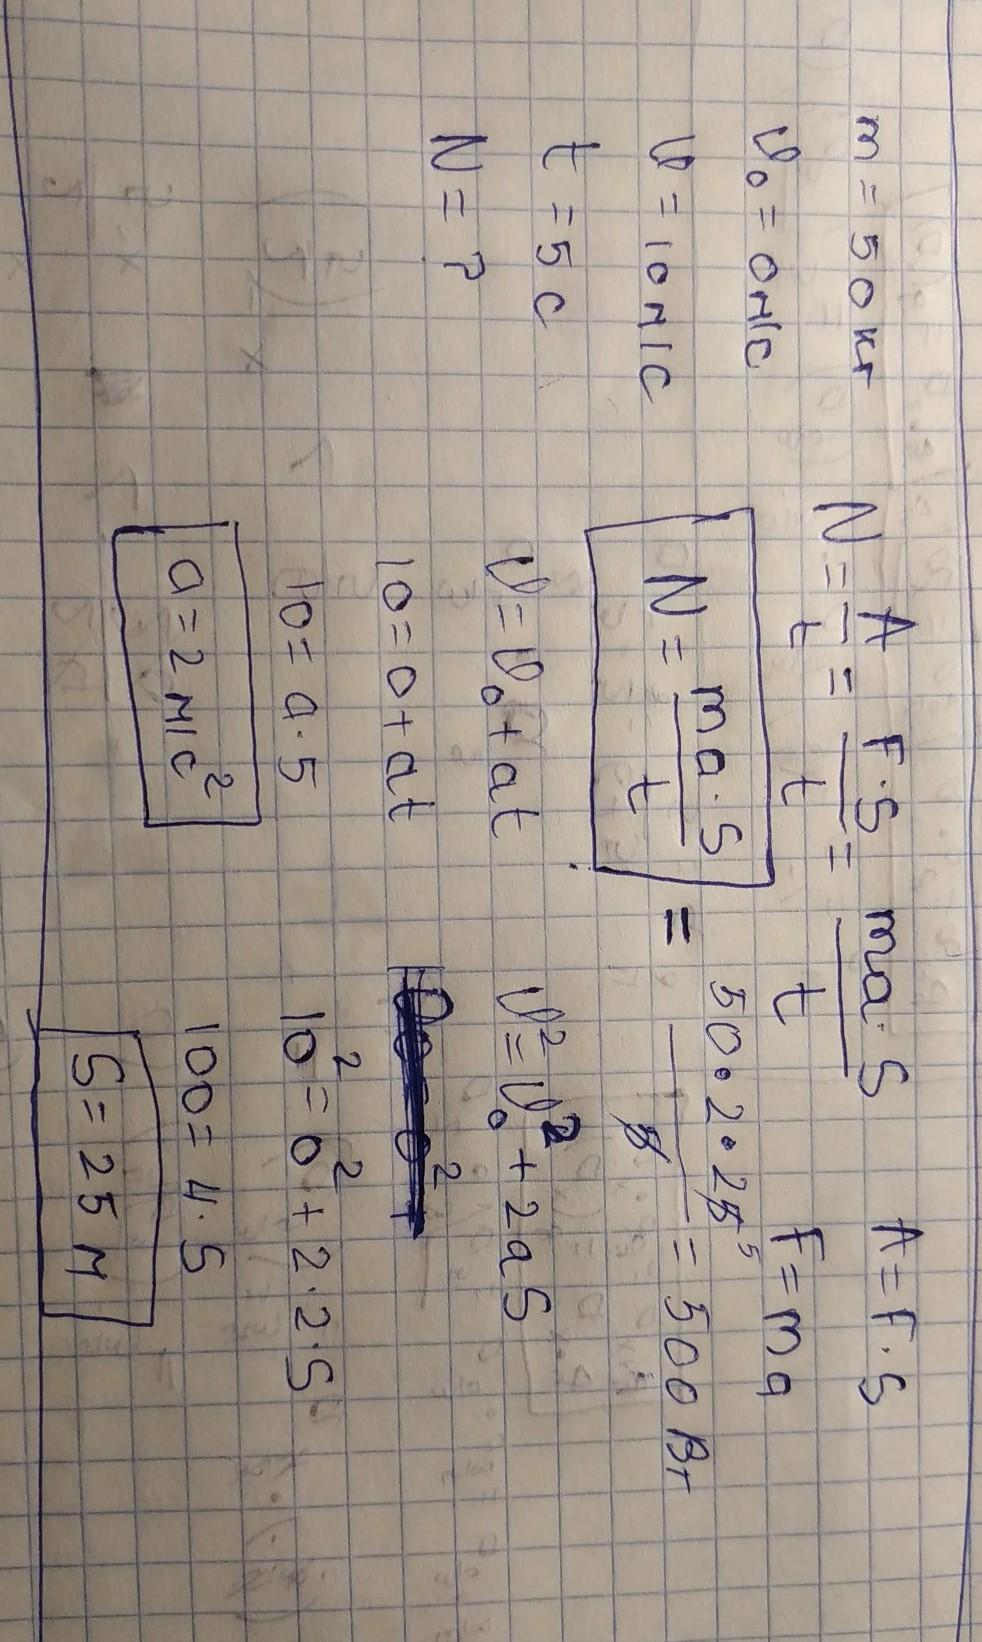 m = 50 кг
υ₀ = 0 м/с
υ = 10 м/с
t = 5 с
N = ?
N = A/t = F·S/t = ma·S/t
A = F·S
F = ma
N = ma·S/t = 50·2·25⁵/5 = 500 Вт
υ = υ₀ + at
10 = 0 + at
10 = a·5
a = 2 м/с²
υ² = υ₀² + 2aS
10² = 0² + 2·2·S
100 = 4·S
S = 25 м